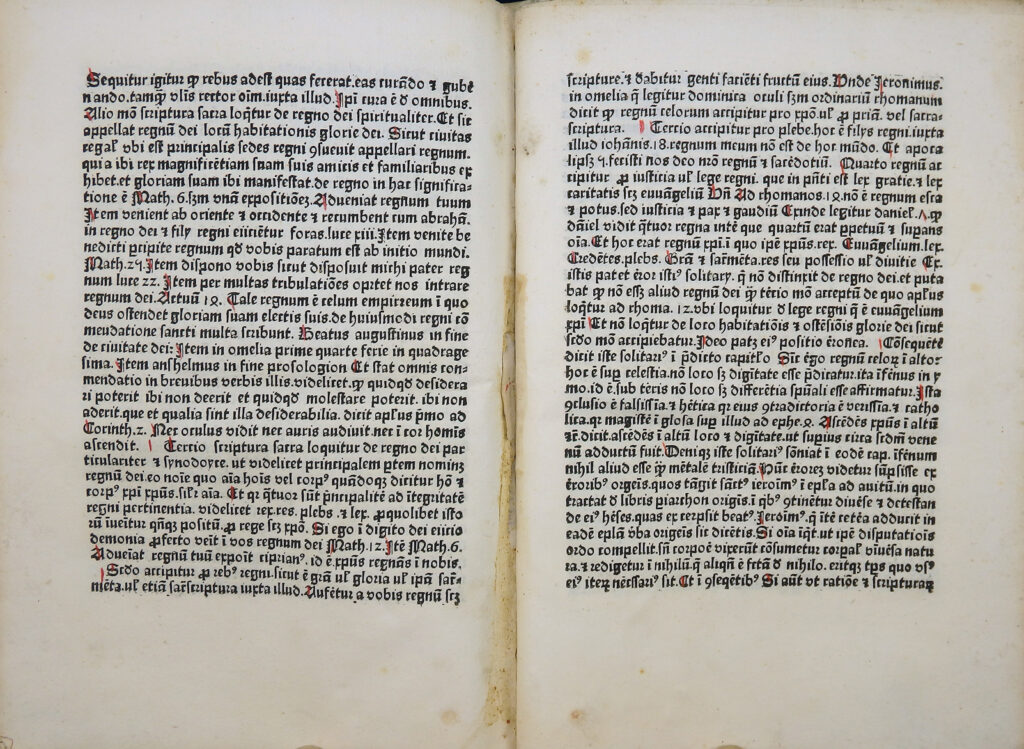 Sequitur igitur ꝙ rebus adest quas fecerat.eas curãdo ⁊ gubẽ
nando.tamqͫ vl̃is rector oĩm.iuxta illud.Ipĩ cura ẽ ð omnibus.
Alio mõ scriptura sacra loqͭur de regno dei spiritualiter.Et sic
appellat regnũ dei locũ habitationis glorie dei. Sicut ciuitas
regal̃ vbi est principalis sedes regni ꝯsueuit appellari regnum.
qui a ibi rex magnificẽtiam suam suis amicis et familiaribus ex
hibet.et gloriam suam ibi manifestat.de regno in hac significa-
tione ẽ Math.6.scꝫm vnã expositiõeꝫ.Adueniat regnum tuum
Item venient ab oriente ⁊ occidente ⁊ recumbent cum abrahã.
in regno dei ⁊ filij regni eijciẽtur foras.luce xiii.Item venite be
nedicti ꝑcipite regnum qð vobis paratum est ab initio mundi.
Math.25.Item dispono vobis sicut disposuit michi pater reg
num luce 22. Item per multas tribulatiões oꝑtet nos intrare
regnum dei.Actuũ 18. Tale regnum ẽ celum empirreum ĩ quo
deus ostendet gloriam suam electis suis.de huiusmodi regni cõ
meudatione sancti multa scribunt. Beatus augustinus in fine
de ciuitate dei: Item in omelia prime quarte ferie in quadrage
sima.Item anshelmus in fine prosologion Et stat omnis com-
mendatio in breuibus verbis illis.videlicet.ꝙ quidqð desidera
ri poterit ibi non deerit et quidqð molestare poterit. ibi non
aderit.que et qualia sint illa desiderabilia. dicit apl̃us ꝑmo ad
Corinth.2. Nec oculus vidit nec auris audiuit.nec ĩ cor homĩs
ascendit. Tercio scriptura sacra loquitur de regno dei par
ticulariter ⁊ synodoyce.ut videlicet principalem ꝑtem nominꝫ
regnũ dei.eo noĩe quo aĩa hoĩs vel corpꝰ quãdoqꝫ dicitur hõ ⁊
corpꝰ xpĩ xp̃us.sil̃r aĩa. Et qꝛ qͭtuor sũt ṗncipalitẽ ad ĩtegritatẽ
regni pertinentia. videlicet rex.res.plebs.⁊ lex. ꝓ quolibet isto
rũ ĩueitur qñqꝫ positũ.ꝓ rege scꝫ xpõ. Si ego ĩ digito dei eiicio
demonia ꝓfecto veĩt ĩ vos regnum dei Math.12.Itẽ Math.6.
Adueĩat regnũ tuũ expoĩt ciprianꝰ.id ẽ.xp̃us regnãs ĩ nobis.
Scðo accipitur ꝓ rebꝰ regni.sicut ẽ gr̃a ul̃ gloria ul̃ ipã sac̃r-
mẽta.ul̃ etiã sac̃rscriptura iuxta illud. Aufẽtur a vobis regnũ scꝫ
scripture.⁊ dabitur genti faciẽti fructũ eius. Unde Ieronimus.
in omelia q̃ legitur dominica oculi scꝫm ordinariũ rhomanum
dicit ꝙ regnũ celorum accipitur pro xpõ.ul̃ ꝓ priã. vel sacra-
scriptura. Tercio accipitur pro plebe.hoc ẽ filijs regni.iuxta
illud iohãnis.18.regnum meum nõ est de hoc mũdo. Et apoca
lipsꝫ 5.fecisti nos deo nr̃o regnũ ⁊ sacẽdotiũ. Quarto regnũ ac
cipitur ꝓ iusticia ul̃ lege regni. que in ṗnti est lex gratie.⁊ lex
caritatis scꝫ euuãgeliũ Uñ Ad rhomanos.18.nõ ẽ regnum esca
⁊ potus.sed iusticia ⁊ pax ⁊ gaudiũ Exinde legitur daniel.7.ꝙ
dãiel vidit qͭtuor regna intẽ que quartũ erat ꝑpetuũ ⁊ suꝑans
oĩa.Et hoc erat regnũ xpĩ.ĩ quo ipẽ xp̃us.rex. Euuãgelium.lex.
Credẽtes.plebs. Gr̃a ⁊ sac̃rmẽta.res seu possessio ul̃ diuitie Ex
istis patet ẽror istiꝰ solitarij.q̃ nõ distinxit de regno dei.et puta
bat ꝙ nõ essꝫ aliud regnũ dei ꝙ̃ tẽcio mõ acceptũ de quo apl̃us
loqͭur ad rhoma. 12.vbi loquitur ð lege regni q̃ ẽ euuãgelium
xpĩ Et nõ loqͭur de loco habitatiõis ⁊ ostẽsiõis glorie dei sicut
scðo mõ accipiebatur.Ideo patꝫ eiꝰ positio ẽronea. Cõsequẽt̃
dicit iste solitariꝰ ĩ ṗdicto capitl̃o Sic ẽgo regnũ celoꝝ ĩ altoꝛ
hoc ẽ suꝑ celestia.nõ loco sꝫ digĩtate esse ṗdicatur.ita ĩfẽnus in y
mo.id ẽ.sub tẽris nõ loco sꝫ differẽtia spũali esse affirmatur.Ista
ꝯclusio ẽ falsissĩa.⁊ hẽtica qꝛ eius ꝯtradictoria ẽ verissĩa.⁊ catho
lica.qꝛ magistẽ ĩ glosa suꝑ illud ad ephe.8. Ascẽdẽs xp̃us ĩ altũ
⁊c̃.dicit.ascẽdẽs ĩ altũ loco ⁊ digĩtate.ut suꝑius circa scðm vene
nũ adductũ fuit.Deniqꝫ iste solitariꝰ sõniat ĩ eodẽ cap. ĩfẽnum
nihil aliud esse ꝙ̃ mẽtalẽ tristiciã.Hũc ẽrorẽꝫ videtur sũpsisse ex
ẽroribꝰ orgeĩs.quos tãgit sanctꝰ ieroĩmꝰ ĩ epl̃a ad auitũ.in quo
tractat ð libris piarchon origĩs.ĩ qͥbꝰ ꝯtinẽtur diuẽse ⁊ detestan
de eiꝰ hẽses.quas excerpsit beatꝰ.Ieroĩmꝰ.q̃ ĩtẽ cetẽa adducit in
eadẽ epl̃a v̾ba origeĩs sic dicẽtis. Si oĩa ĩqͭt.ut ipẽ disputatiõis
ordo compellit.sñ corpoẽ vixerũt cõsumetur corꝑal̾ vĩuẽsa natu
ra.⁊ redigetur ĩ nihilũ.q̃ aliqñ ẽ fctã ð nihilo. eritqꝫ tꝑs quo vsꝰ
eiꝰ iteꝝ nẽcsariꝰ sit.Et ĩ ꝯseqẽtibꝰ Si aũt vt ratiõe ⁊ scripturaꝝ